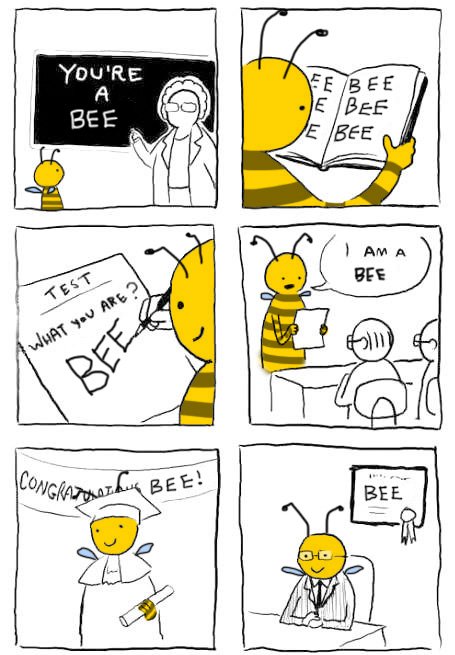 YOU'RE
A
BEE
EE BEE
E BEE
E BEE
TEST
WHAT YOU ARE?
BEE
I AM A
BEE
CONGRATULATIONS BEE!
BEE